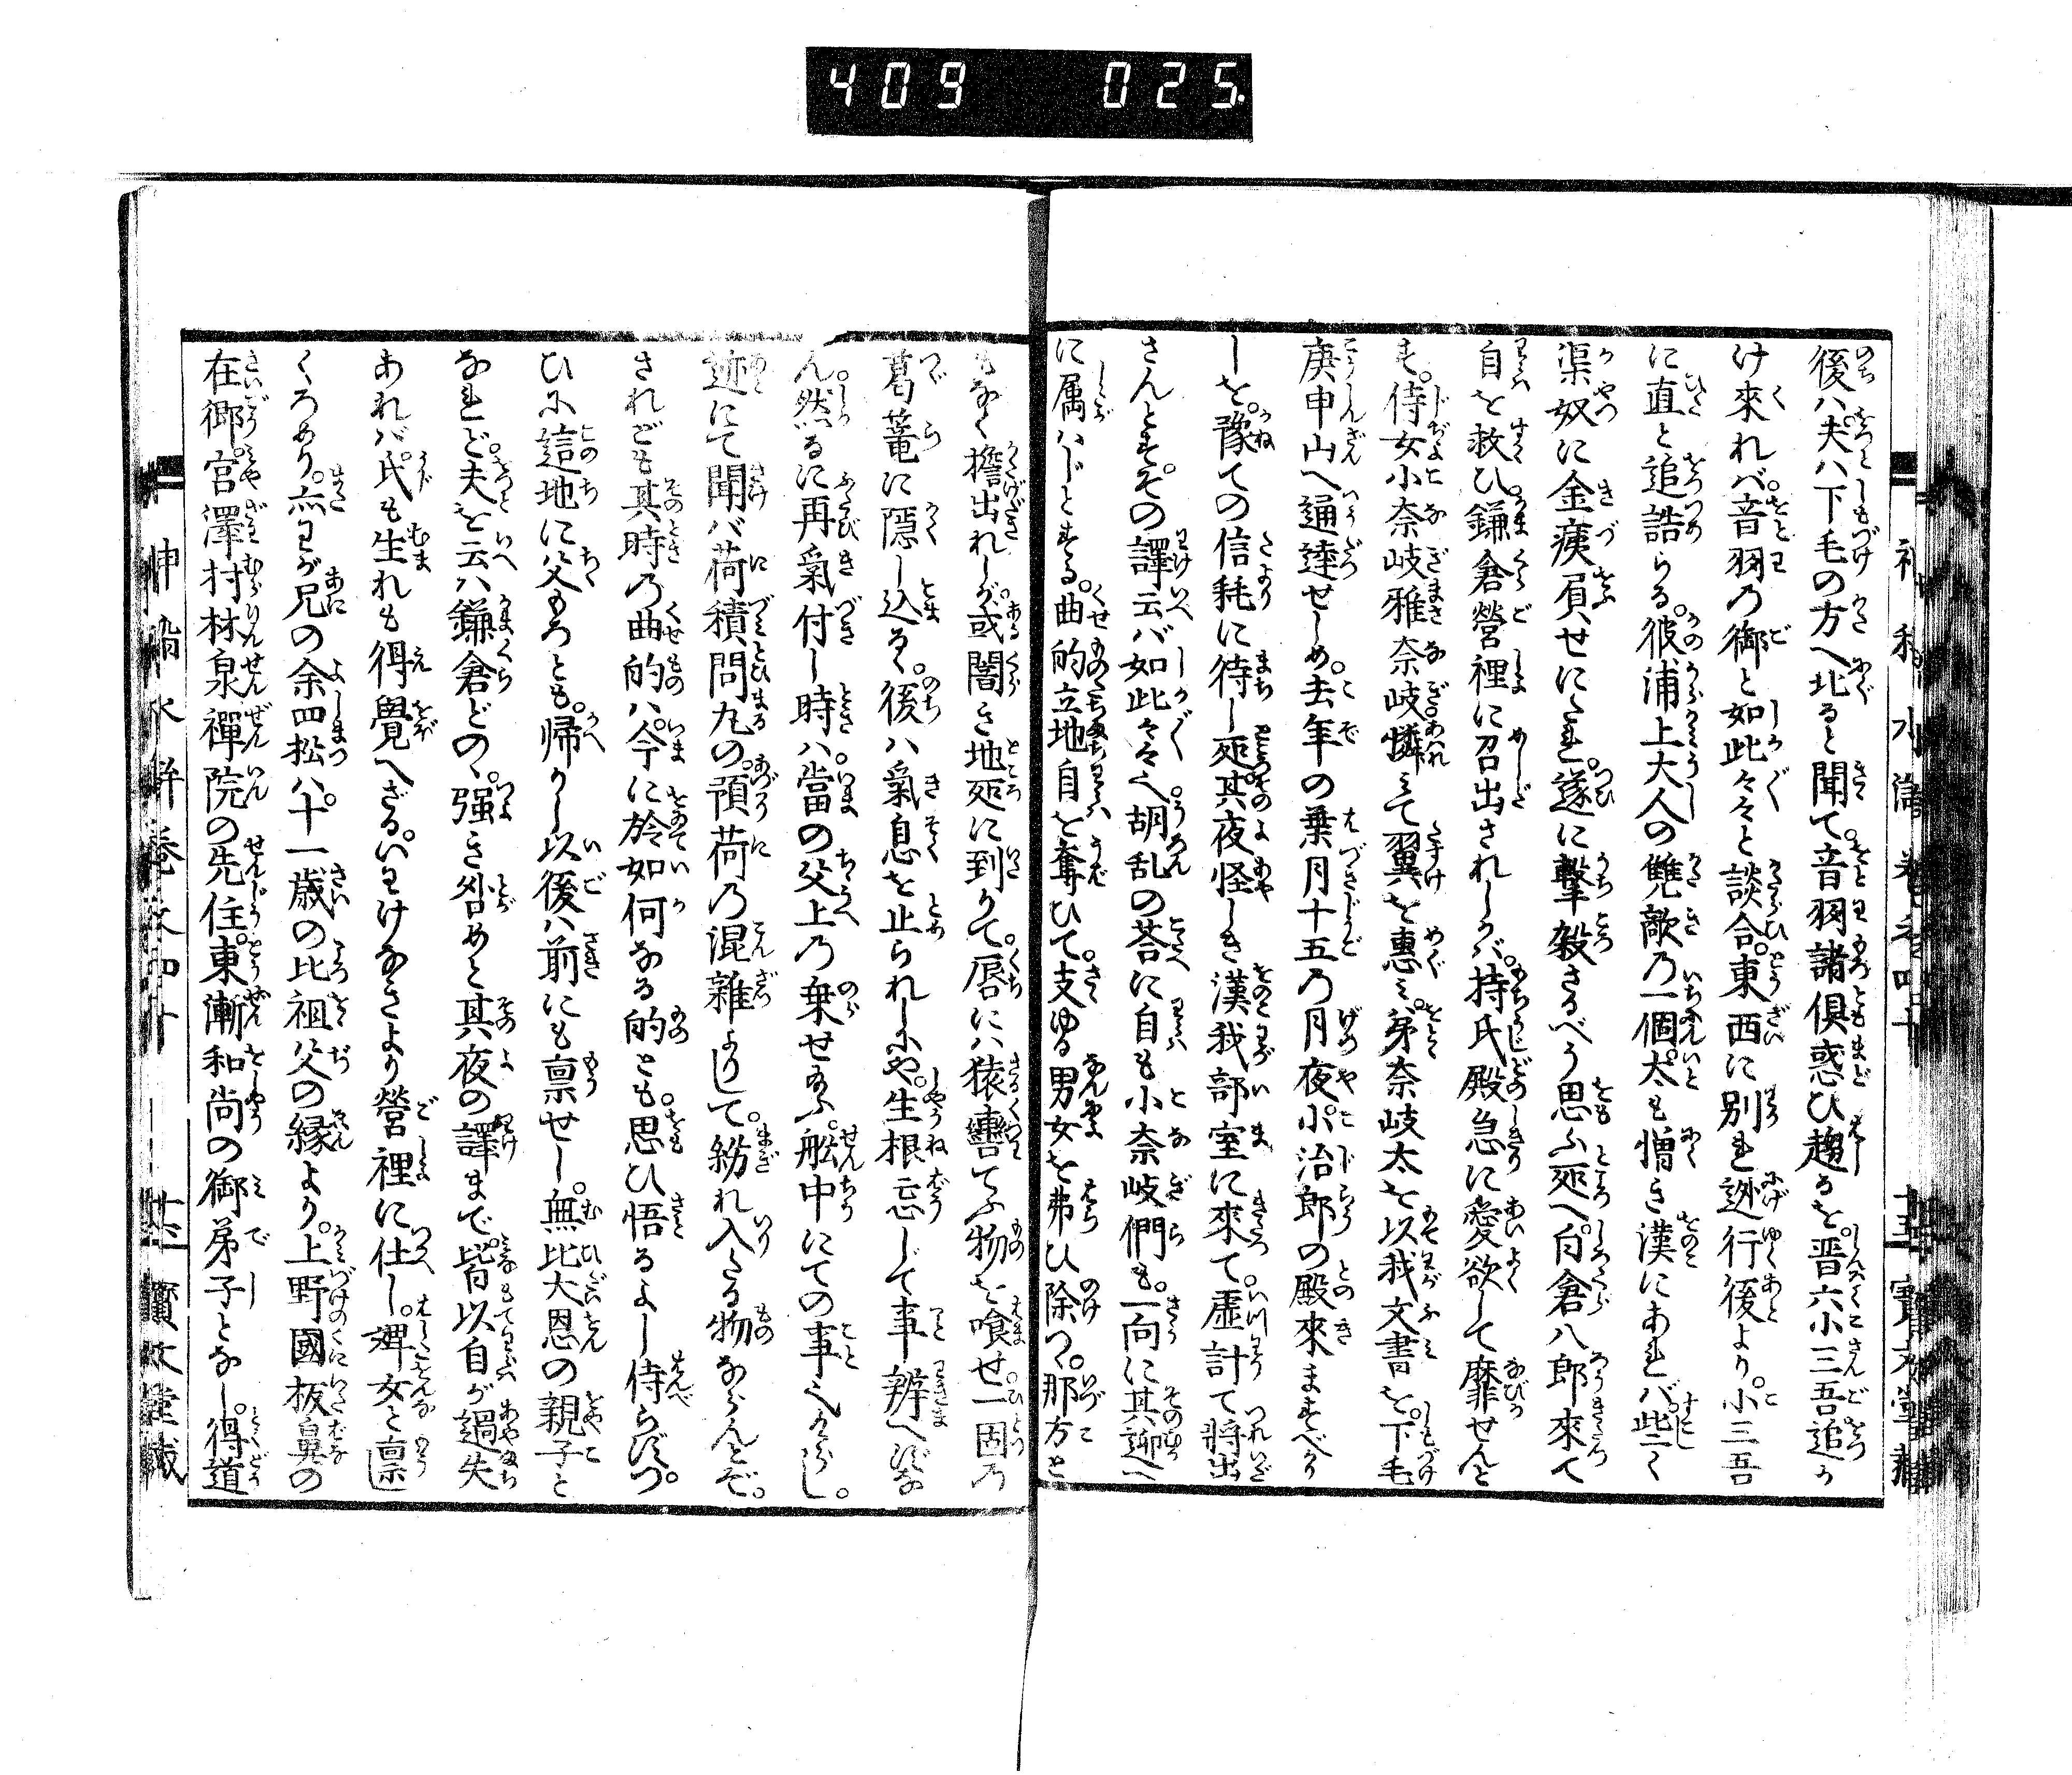 409 025.
後ハ夫ハ下毛の方へ北ると聞て。音羽諸倶惑ひ趨るを。晋六小三吾追か
け來れバ。音羽の御と如此々々と談合。東西に別れ迯行後より。小三吾
に直と追詰らる。彼浦上大人の讐敵の一個。太も憎き漢にあれバ。些く
渠奴に金痍肩せにたれ。遂に撃殺さるべう思ふ処へ。白倉八郎來て
自を救ひ。鎌倉營裡に召出されしかバ。持氏殿急に愛欲して靡せんと
す。侍女小奈岐雅奈岐憐ミて翼を惠ミ。弟奈岐太を以我文書を。下毛
庚申山へ通達せしめ。去年の葉月十五の月夜。小治郎の殿來ますべか
しを。豫ての信耗に待し処。其夜怪しき漢我部室に來て。虚計て將出
さんとす。その譯云バ如此々々へ胡乱の荅に自も小奈岐們も。一向に其迎へ
に属ハじとする。曲的立地自を奪ひて。支ゆる男女を弗ひ除つ。那方と
もなく擔出れしが。或闇き地処に到りて。唇にハ猿轡てふ物を喰せ。一固の
葛篭に隠し込る。後ハ氣息を止られしにや。生根忘じて事辨へずな
ん。然るに再氣付し時ハ。當の父上の乗せ給ふ。舩中にての事也けらし。
迹にて聞バ荷積問丸の。預荷の混雑よりして。紛れ入たる物ならんとぞ。
されども其時の曲的ハ。今に於如何なる的とも。思ひ悟るよし侍らずつ。
ひに這地に父もろとも。帰りし以後ハ前にも禀せし。無比大恩の親子と
なれど。夫を云ハ鎌倉どの。强き咎めと其夜の譯まで。皆以自が過失
あれバ。氏も生れも得覺へざる。いわけなきより營裡に仕し。婢女と禀し
くろめり。亦わが兄の余四松ハ。十一歳の比祖父の縁より。上野國板鼻の
在郷。宮澤村林泉禪院の先住。東漸和尚の御弟子となし。得道
寳文堂藏